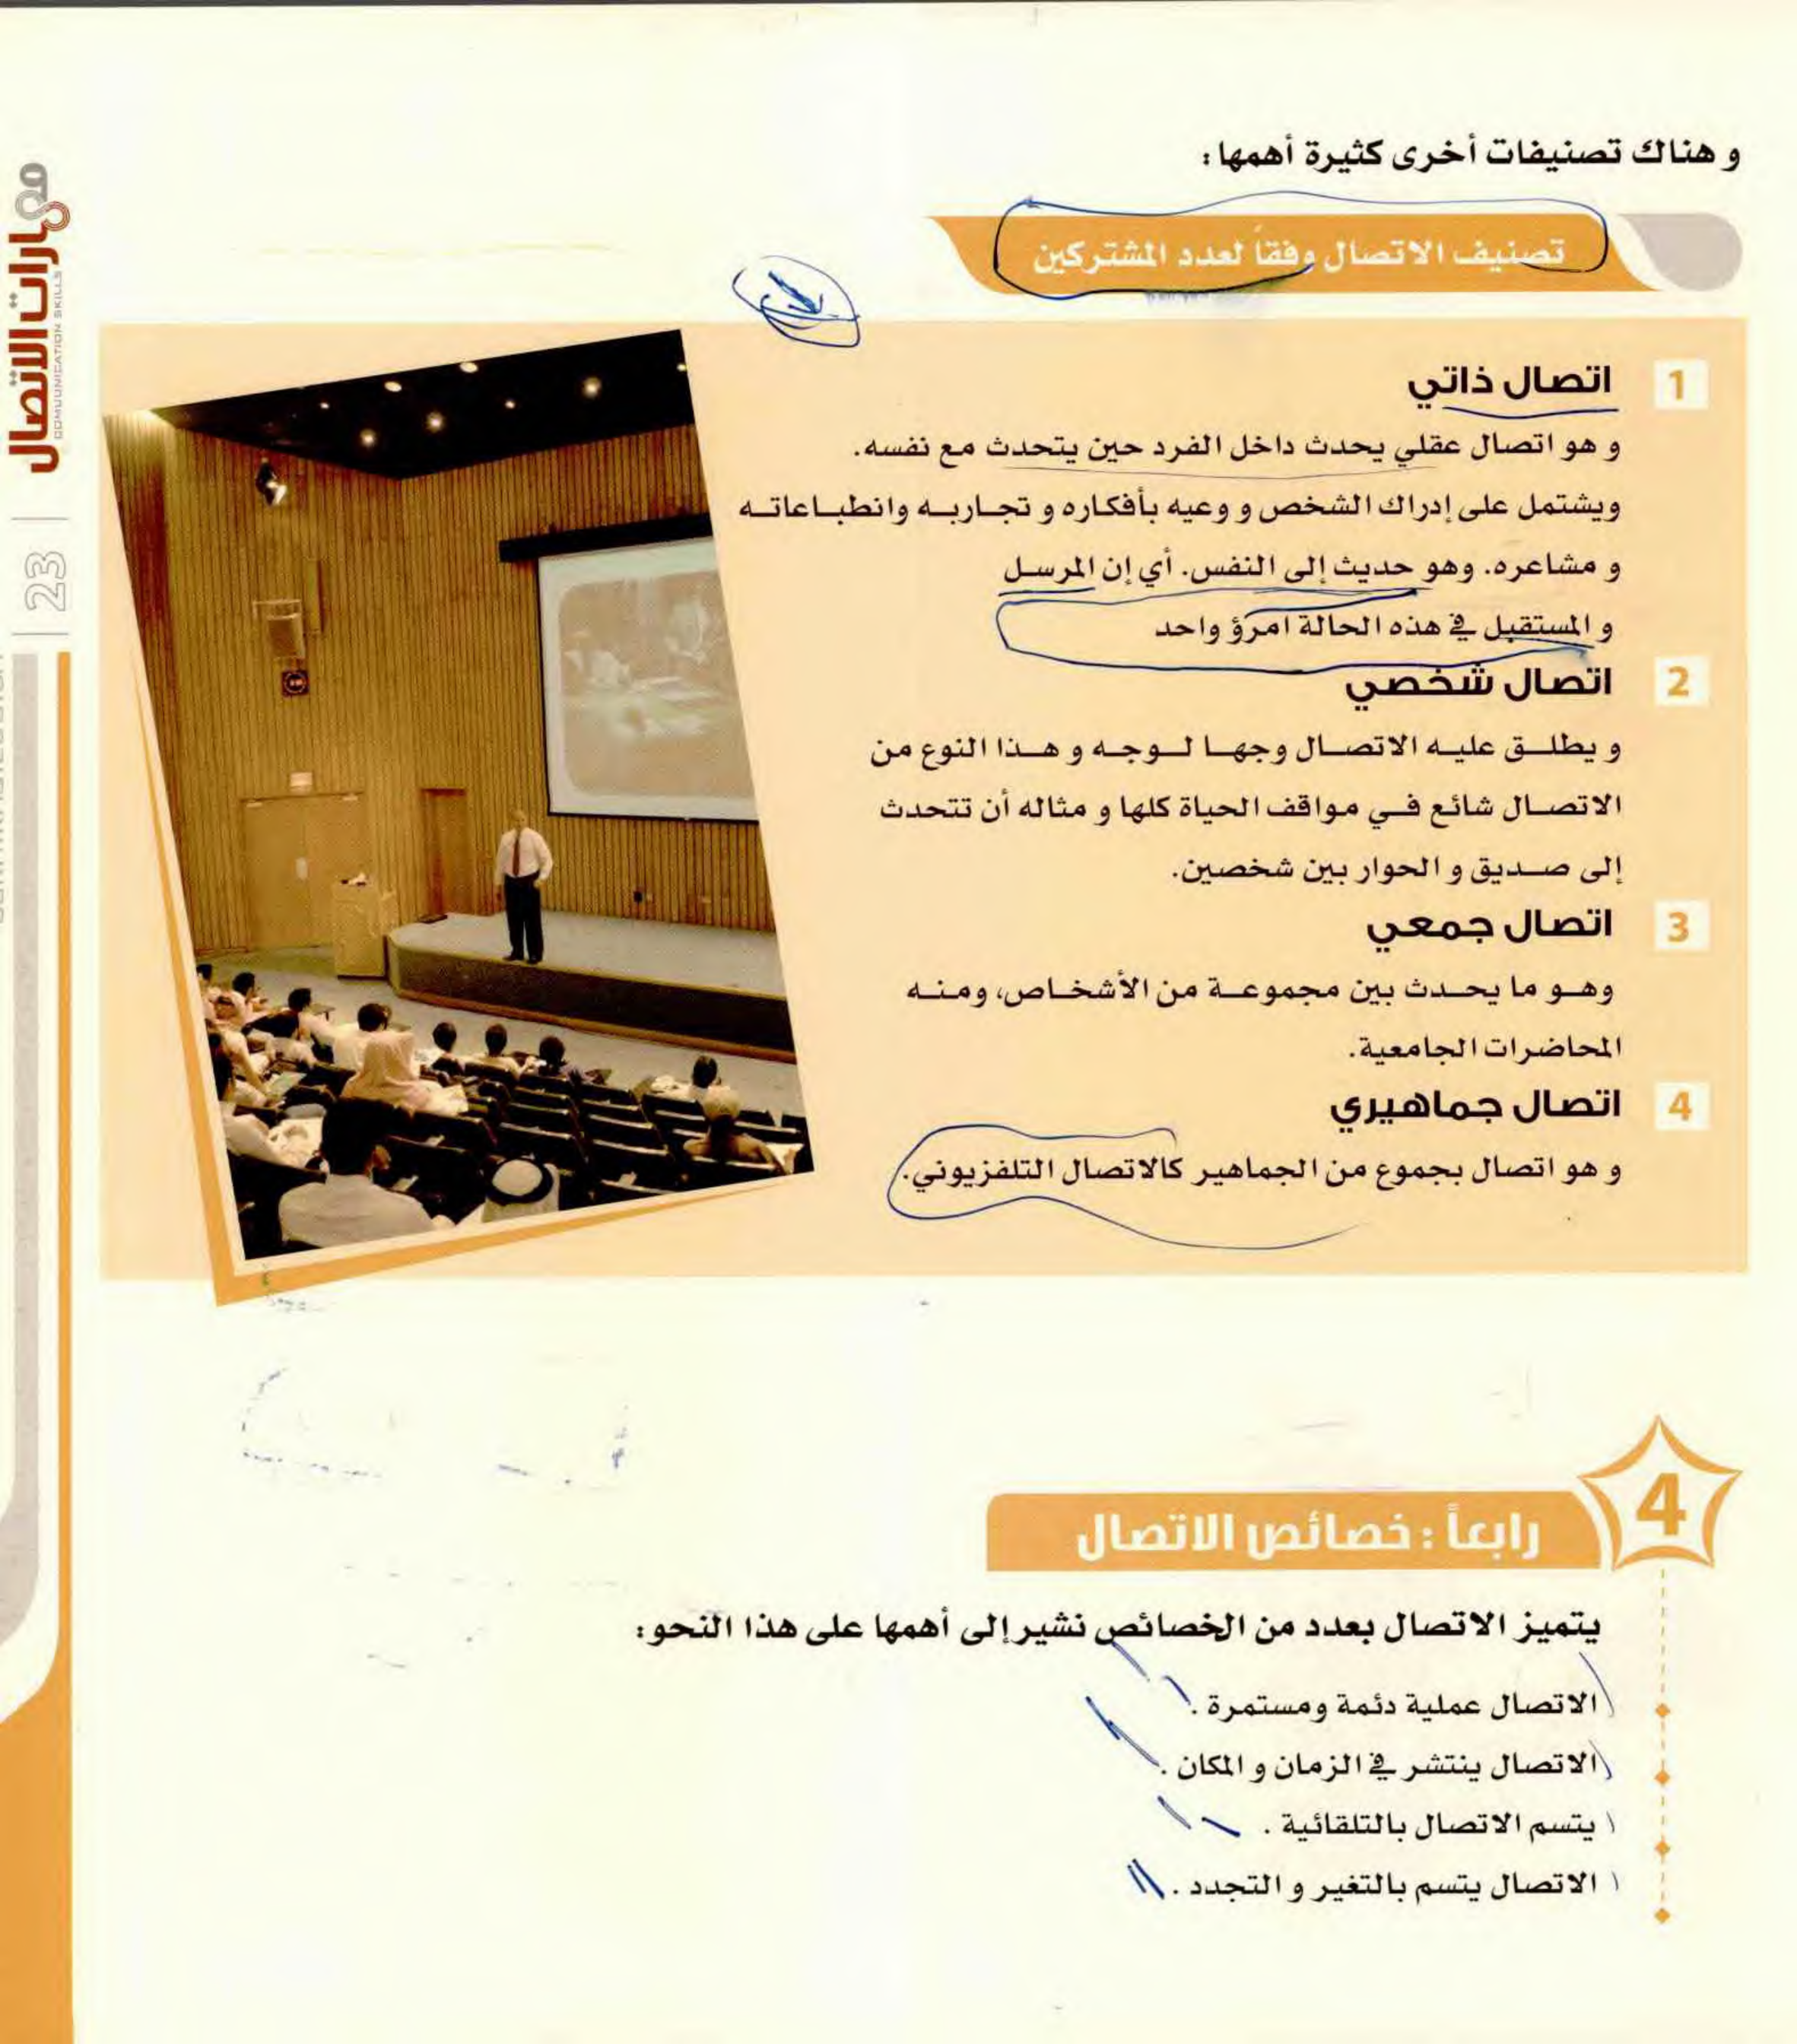 و هناك تصنيفات أخرى كثيرة أهمها :
تصنيف الاتصال وفقاً لعدد المشتركين
1 اتصال ذاتي
و هو اتصال عقلي يحدث داخل الفرد حين يتحدث مع نفسه.
ويشتمل على إدراك الشخص و وعيه بأفكاره و تجاربه وانطباعاته
و مشاعره. وهو حديث إلى النفس. أي إن المرسل
و المستقبل في هذه الحالة امرؤ واحد
2 اتصال شخصي
و يطلق عليه الاتصال وجها لوجه و هذا النوع من
الاتصال شائع في مواقف الحياة كلها و مثاله أن تتحدث
إلى صديق و الحوار بين شخصين.
3 اتصال جمعي
وهو ما يحدث بين مجموعة من الأشخاص، ومنه
المحاضرات الجامعية.
4 اتصال جماهيري
و هو اتصال بجموع من الجماهير كالاتصال التلفزيوني.
4
رابعاً : خصائص الاتصال
يتميز الاتصال بعدد من الخصائص نشير إلى أهمها على هذا النحو :
الاتصال عملية دئمة ومستمرة .
الاتصال ينتشر في الزمان و المكان .
يتسم الاتصال بالتلقائية .
الاتصال يتسم بالتغير و التجدد .
مهارات الاتصال
COMUUNICATION SKILLS
23